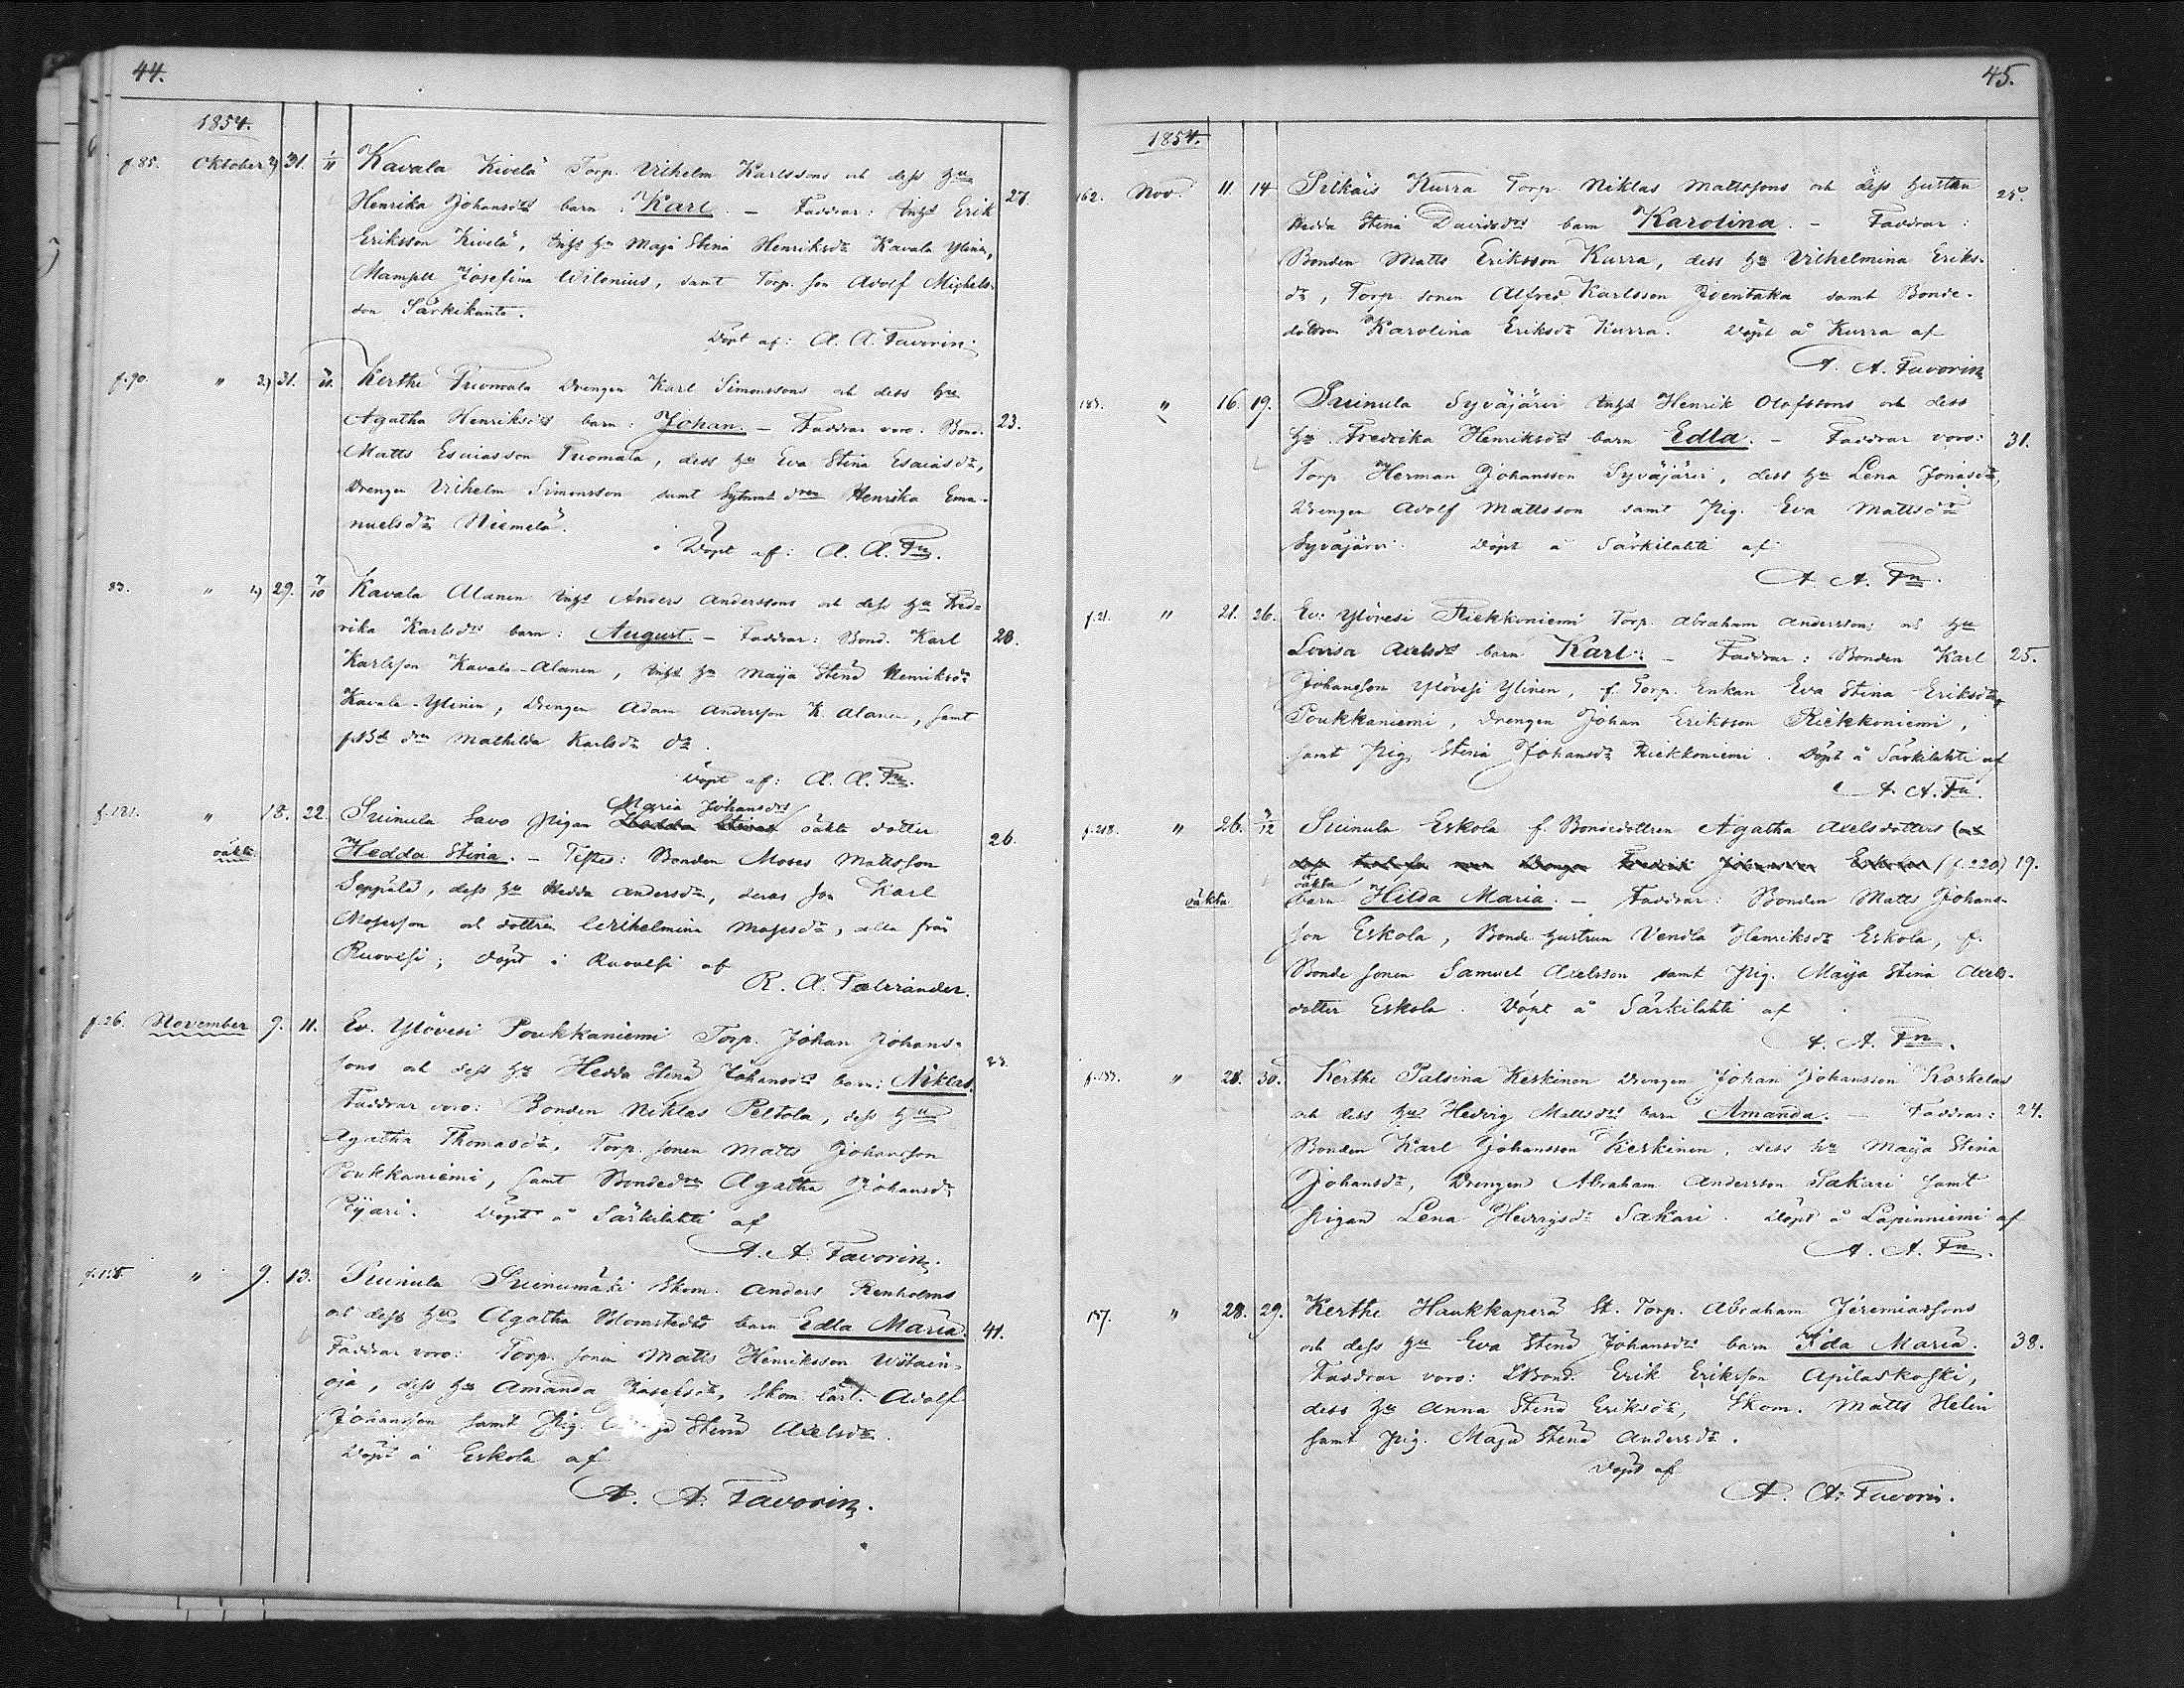 44.
1854.
f.85. Oktober 3) 31. 1/11 Kavala Kivelä Torp. Vilhelm Karlssons och dess hu 27.
Henrika Johansdrs barn Karl. – Faddrar: Inhs Erik
Eriksson Kivelä, Inhs hu Maja Stina Henriksdr Kavala Ylinen,
Mamsell Josefina Wilenius, samt Torp. son Adolf Michels-
son Särkikanta.
Döpt af: A. A. Favorin.
f.90. " 2) 31. 11. Kerthe Tuomala Drengen Karl Simonssons och dess hu
Agatha Henriksdrs barn: Johan. – Faddrar voro: Bond. 23.
Matts Esaiasson Tuomala, dess hu Eva Stina Esaiasdr,
Drengen Vilhelm Simonsson samt drn Henrika Ema-
nuelsdr Niemelä.
Döpt af: A. A. Fn.
83. " 1.) 29. 7/10 Kavala Alanen Inhs Anders Anderssons och dess hu Fred-
rika Karlsdrs barn: August. – Faddrar: Bond. Karl 28.
Karlsson Kavala-Alanen, Inhs hu Maija Stina Henriksdr
Kavala-Ylinen, Drengen Adam Andersson K. Alanen, samt
drn Mathilda Karlsdr
Döpt af: A. A. Fn.
Maria Johansdrs
f.181. " 18. 22. Suinula Savo Pigan Hedda Stinas oäkta dotter 26.
oäkta Hedda Stina. – Testes: Bonden Moses Mattsson
Seppälä, dess hu Hedda Andersdr, deras son Karl
Mosesson och dottren Wilhelmina Mosesdr, alla från
Ruovesi; döpt i Ruovesi af
R. A.
f.26. November 9. 11. Ev. Ylövesi Poukkaniemi Torp. Johan Johans-
sons och dess hu Hedda Stina Johansdrs barn: Niklas. 33.
Faddrar voro: Bonden Niklas Peltola, dess hu
Agatha Thomasdr, Torp. sonen Matts Johansson
Poukkaniemi, samt Bondedrn Agatha Johansdr
Pyjari. Döpt å Särkilahti af
A. A. Favorin.
" 9. 13. Suinula Suinumäki Skom. Anders Renholms
och dess hu Agatha Blomstedts barn Edla Maria. 41.
Faddrar voro: Torp. sonen Matts Henriksson
oja, dess hu Amanda Josefsdr, Skom. lärl. Adolf
Johansson samt Pig. Stina Axelsdr.
Döpt å Eskola af
A. A. Favorin.
45.
1854.
162. Nov. 11. 14 Pitkäis Kurra Torp. Niklas Mattssons och dess hustru 25.
Hedda Stina Davidsdrs barn Karolina. – Faddrar:
Bonden Matts Eriksson Kurra, dess hu Vilhelmina Eriks-
dr, Torp. sonen Alfred Karlsson samt Bonde-
dottren Karolina Eriksdr Kurra. Döpt å Kurra af
A. A. Favorin
183. " 16. 19. Suinula Syväjärvi Inhs Henrik Olofssons och dess
hu Fredrika Henriksdrs barn Edla. – Faddrar voro: 31.
Torp. Herman Johansson Syväjärvi, dess hu Lena Jonasdr,
Drengen Adolf Mattsson samt Pig. Eva Mattsdr
Syväjärvi. Döpt å Särkilahti af
A. A. Fn.
f.21. " 21. 26. Ev: Ylövesi Riekkoniemi Torp. Abraham Anderssons och hu
Lovisa Axelsdrs barn Karl. – Faddrar: Bonden Karl 25.
Johansson Ylövesi Ylinen, f. Torp. Enkan Eva Stina Eriksdr
Poukkaniemi, Drengen Johan Eriksson Riekkoniemi,
samt Pig. Stina Johansdr Riekkoniemi. Döpt å Särkilahti af
A. A. Fn.
f.218. " 26. 3/12 Suinula Eskola f. Bondedottren Agatha Axelsdotters (och
Drengen Fredrik Johansson (f.220) 19.
oäkta
oäkta barn Hilda Maria. – Faddrar: Bonden Matts Johans-
son Eskola, Bonde hustrun Vendla Henriksdr Eskola, f.
Bonde sonen Samuel Axelsson samt Pig. Maija Stina Axels-
dotter Eskola. Döpt å Särkilahti af
A. A. Fn.
" 28. 30. Kerthe Palsina Keskinen Drengen Johan Johansson Koskelas
och dess hu Hedvig Mattsdrs barn Amanda. – Faddrar: 24.
Bonden Karl Johansson Keskinen, dess hu Maija Stina
Johansdr, Drengen Abraham Andersson Sakari samt
Pigan Lena Sakari. Döpt å Lapinniemi af
A. A. Fn.
157. " 28. 29. Kerthe Haukkaperä St. Torp. Abraham Jeremiassons
och dess hu Eva Stina Johansdrs barn Ida Maria. 38.
Faddrar voro: Bond. Erik Eriksson Apilaskoski,
dess hu Anna Stina Eriksdr, Skom. Matts Helin
samt Pig. Maja Stina Andersdr.
Döpt af
A. A. Favorin.